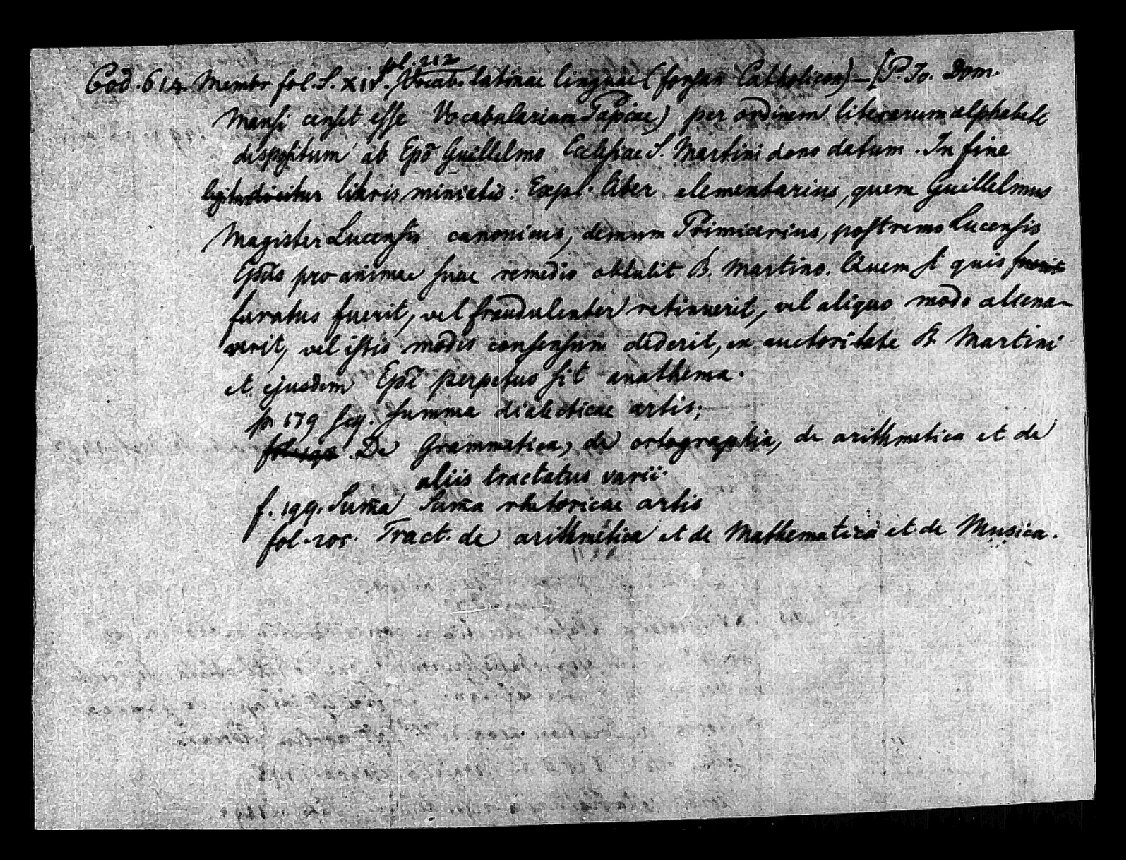 fol. 212
Cod. 614 Membr fol. S. XIV. Vocab. latinae linguae (forsan Catholicon) – (P. Jo. Dom.
Mansi censet esse Vocabularium Papiae) per ordinem literarum alphabeti
dispositum ab Epō Guillelmo Ecclesiae S. Martini dono datum. In fine
legitur dicitur libris miniatis: Expl. liber elementarius, quem Guillelmus
Magister Lucensis canonicus, demum Primicerius, postremo Lucensis
Epūs pro animae suae remedio obtulit B. Martino. Quem si quis fuerit
furatus fuerit, vel fraudulenter retinuerit, vel aliquo modo aliena-
verit, vel istis modis consensum dederit, ex auctoritate B. Martini
et ejusdem Epī perpetuo sit anathema.
p. 179 seq. Summa dialecticae artis;
De Grammatica, de ortographia, de arithmetica et de
aliis tractatus varii.
f. 199. Sum̄a Sum̄a rhetoricae artis
fol. 205. Tract. de arithmetica et de Mathematica et de Musica.